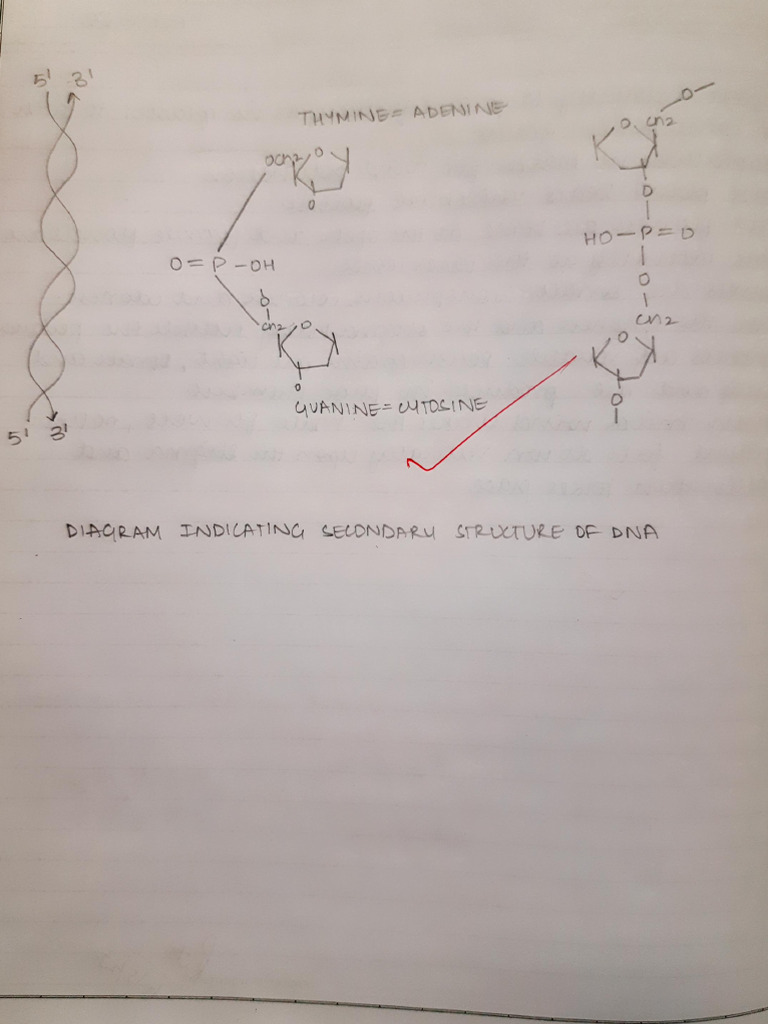 5' 3'
THYMINE = ADENINE
O
CH2
OCH2 O
O
O
O
HO-P=O
O=P-OH
O
O
CH2
CH2 O
O
O
O
GUANINE = CYTOSINE
5' 3'
DIAGRAM INDICATING SECONDARY STRUCTURE OF DNA